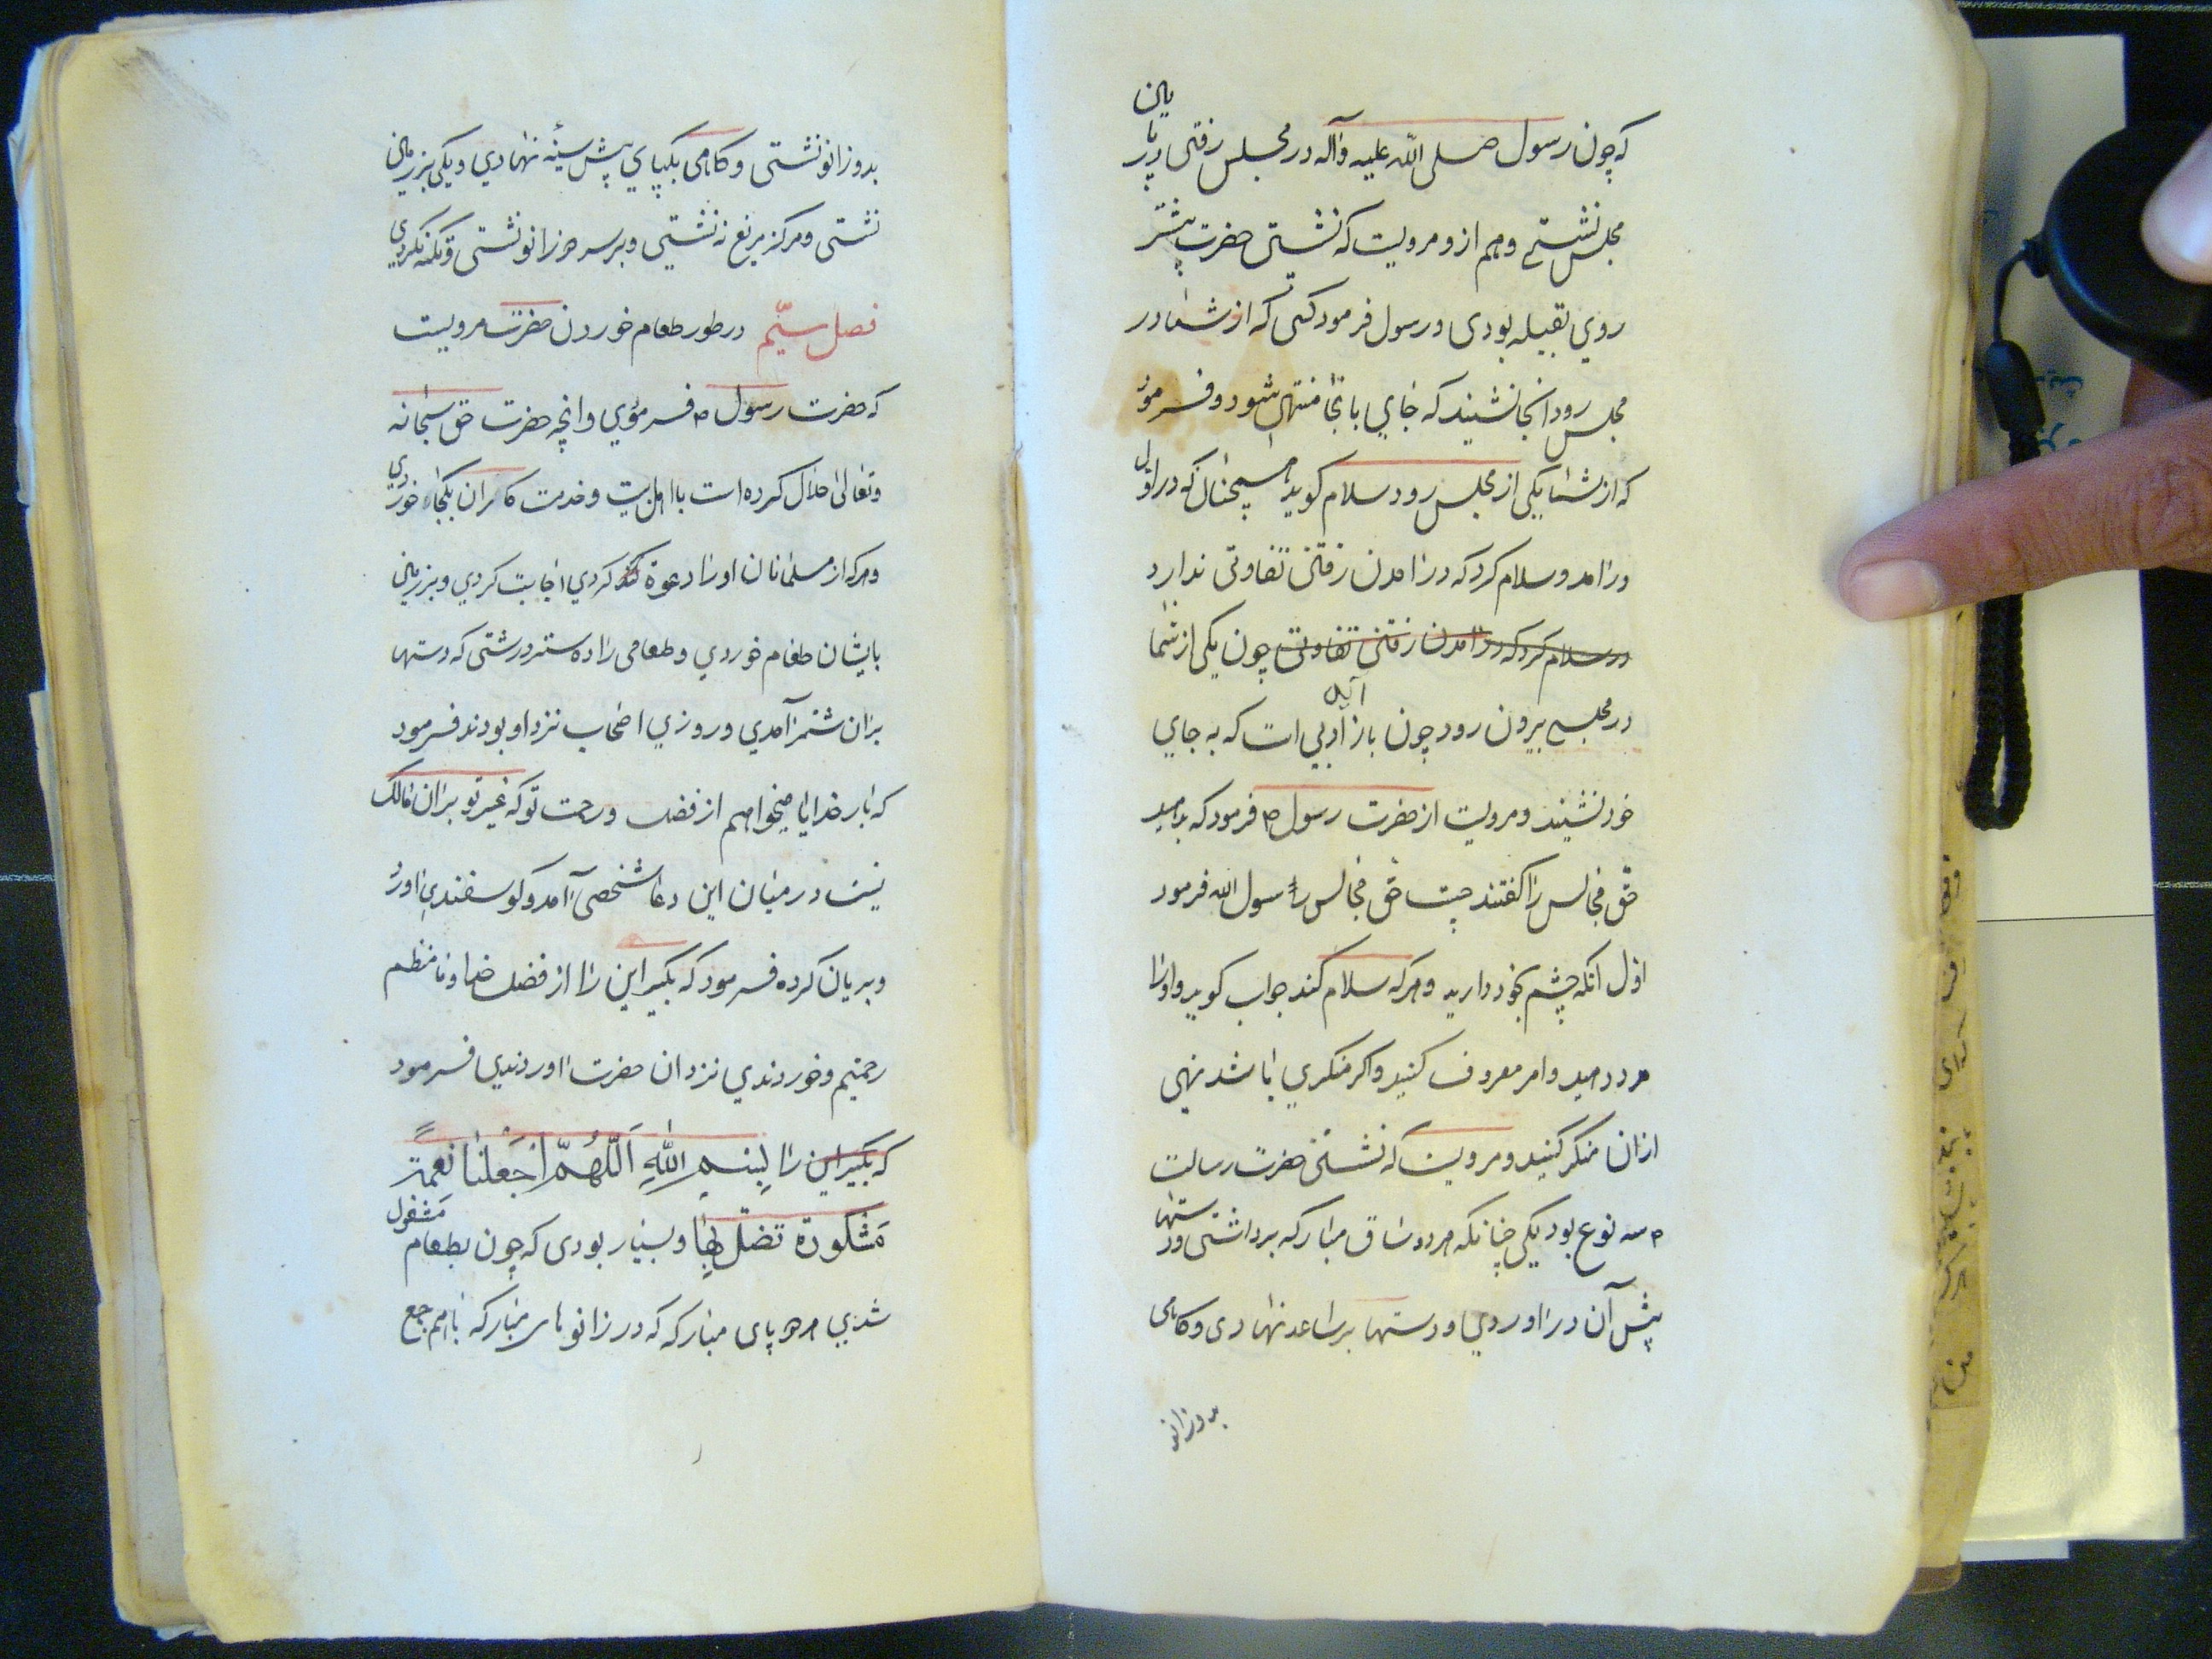 که چون رسول صلی الله علیه وآله در مجلس رفتی در پایان
مجلس نشستی وهم ازو مرویست که نشستن حضرت بیشتر
روی بقبیله بودی ورسول فرمود کسی که از شما در
مجلس رود انجا نشیند که جای بانجا منتهی شود وفرمود
که از شما یکی از مجلس رود سلام کوید همچنانکه در اول
درامد وسلام کرد که درامدن رفتن تفاوتی ندارد
در سلام کرد که درامدن رفتن تفاوتی چون یکی از شما
در مجلس بیرون رود چون باز آید اولی است که به جای
خود نشیند ومرویست از حضرت رسول ص فرمود که بدهید
حق مجالس را کفتند چیست حق مجالس یا رسول الله فرمود
اول انکه چشم بخود دارید وهرکه سلام کند جواب کویید واورا
مدد دهید وامر معروف کنید واکر منکری باشد نهی
ازان منکر کنید ومرویست که نشستن حضرت رسالت
ص سه نوع بود یکی چنانکه هر دو ساق مبارکه برداشتی ودستها
پیش آن دراوردی ودستها برساعد نهادی وکاهی
بدوزانو
بدوزانو نشستی وکاهی یکپای پیش سینه نهادی ویکی بزیر ران
نشستی وهرکز مربع نه نشستی وبرسر هر زانو نشستی وتکیه نکردی
فصل سیّم در طور طعام خوردن حضرت مرویست
که حضرت رسول ص فرمودی وانچه حضرت حق سبحانه
وتعالی حلال کرده است بااهل بیت وخدمت کاران یکجا خوردی
وهرکه از مسلمانان اورا دعوة کردی اجابت کردی وبزمین
بایشان طعام خوردی وطعامی را دوستر داشتی که دستها
بران بیشتر آمدی وروزی اصحاب نزد او بودند فرمود
که بار خدایا میخواهم از فضل ورحمت تو که غیر تو بران مالک
نیست در میان این دعا شخصی آمد وکوسفندی اورد
وبریان کرده فرمود که بکیر این را از فضل خدا وما منتظر
رحمتیم وخوردندی نزد ان حضرت اوردندی فرمود
که بکیر این را بِسْمِ اللهِ اَللّهُمَّ اجْعَلْنا نعمةً
مَشکورة تفضّل بها وبسیار بودی که چون بطعام مشغول
شدی هردو پای مبارکه که در زانوهای مبارکه باهم جمع